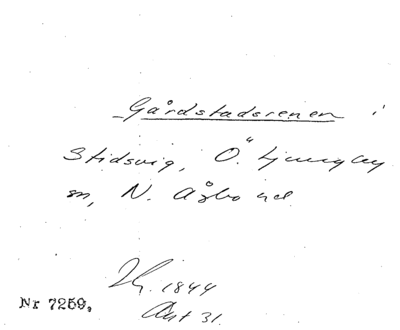 Gårdstadsrenen i
Stidsvig, Ö. Ljungby
sn, N. Åsbo hd
1844
Akt 31
Nr 7259,